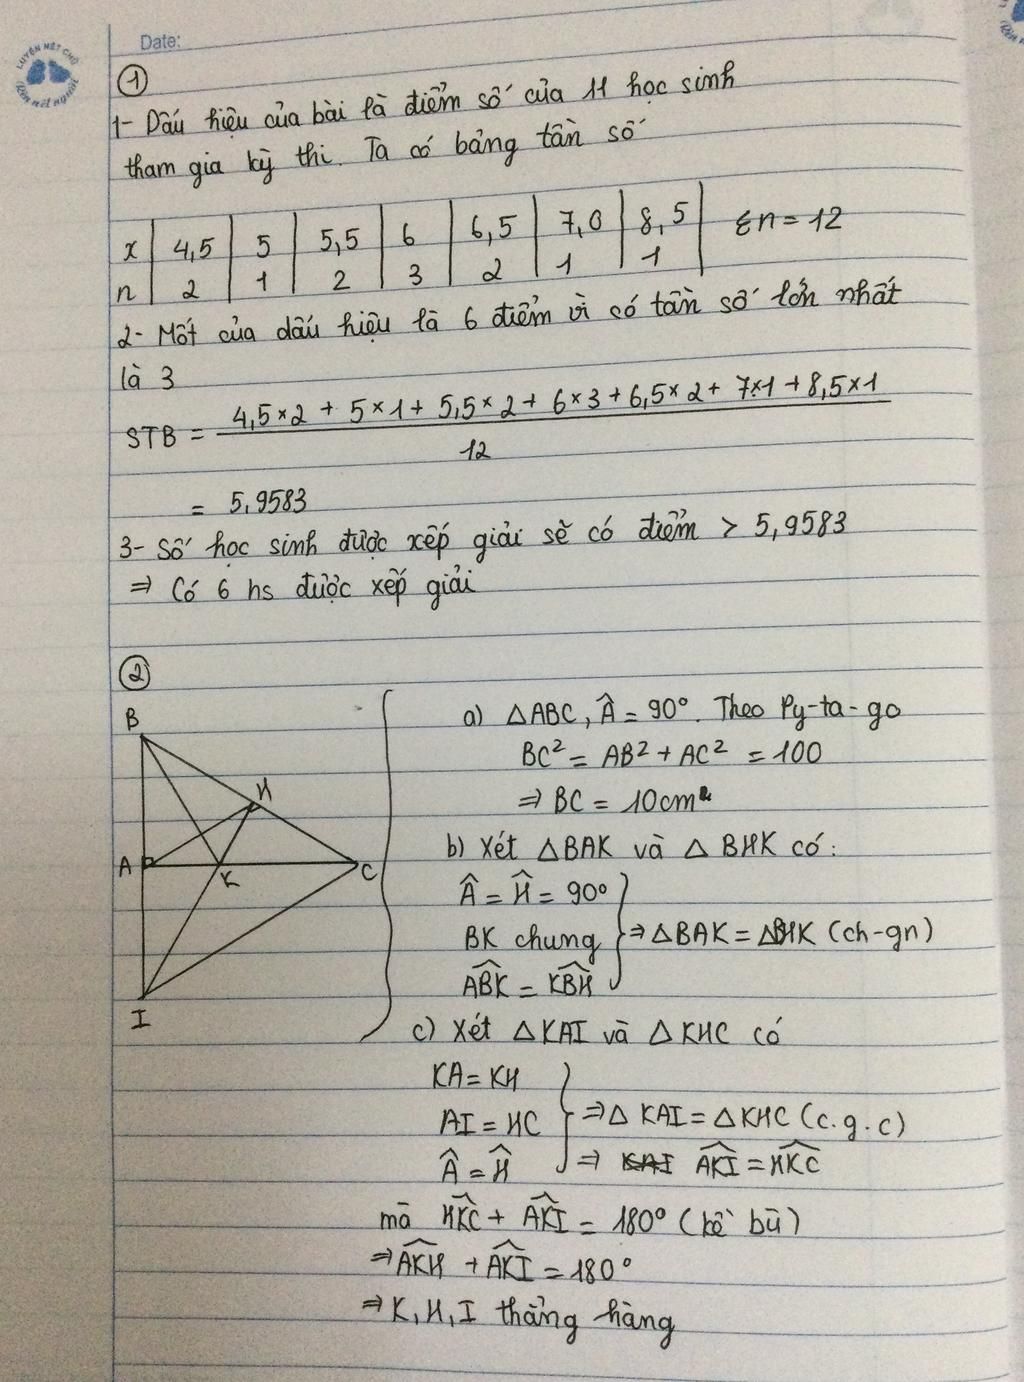 LUYỆN NÉT CHỮ
Rèn nết người
Date:
①
1- Dấu hiệu của bài là điểm số của 11 học sinh
tham gia kỳ thi. Ta có bảng tần số
x | 4,5 | 5 | 5,5 | 6 | 6,5 | 7,0 | 8,5 | Σn = 12
n | 2 | 1 | 2 | 3 | 2 | 1 | 1
2- Mốt của dấu hiệu là 6 điểm vì có tần số lớn nhất
là 3
STB = (4,5×2 + 5×1 + 5,5×2 + 6×3 + 6,5×2 + 7×1 + 8,5×1) / 12
= 5,9583
3- Số học sinh được xếp giải sẽ có điểm > 5,9583
⇒ Có 6 hs được xếp giải
②
B
H
A
K
C
I
a) △ABC, Â = 90°. Theo Py-ta-go
BC² = AB² + AC² = 100
⇒ BC = 10cm
b) Xét △BAK và △BHK có:
Â = Ĥ = 90°
BK chung ⇒ △BAK = △BHK (ch-gn)
ABK = KBH
c) Xét △KAI và △KHC có
KA = KH
AI = HC ⇒ △KAI = △KHC (c.g.c)
Â = Ĥ ⇒ KAI AKI = HKC
mà HKC + AKI = 180° (kề bù)
⇒ AKH + AKI = 180°
⇒ K, H, I thẳng hàng